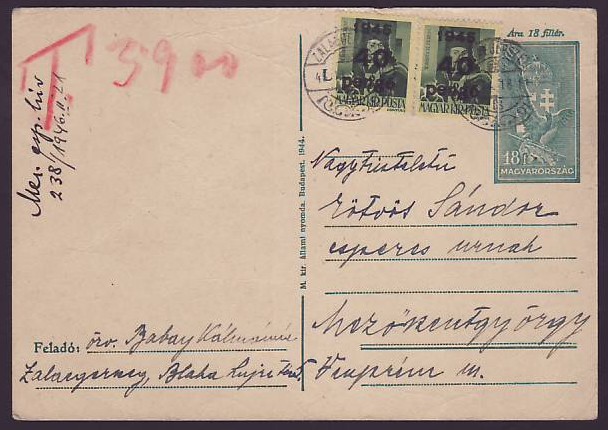 Ára 18 fillér.
T 3900
1945 1945
40 40
pengő pengő
MAGYAR KIR. POSTA MAGYAR KIR. POSTA
18f
MAGYARORSZÁG
238/1946.II.21
M. kir. állami nyomda. Budapest. 1944.
Nagytiszteletű
Eötvös Sándor
esperes urnak
Mezőszentgyörgy
Veszprém m.
Feladó: özv. Babay Kálmánné
Zalaegerszeg, Blaha Lujza